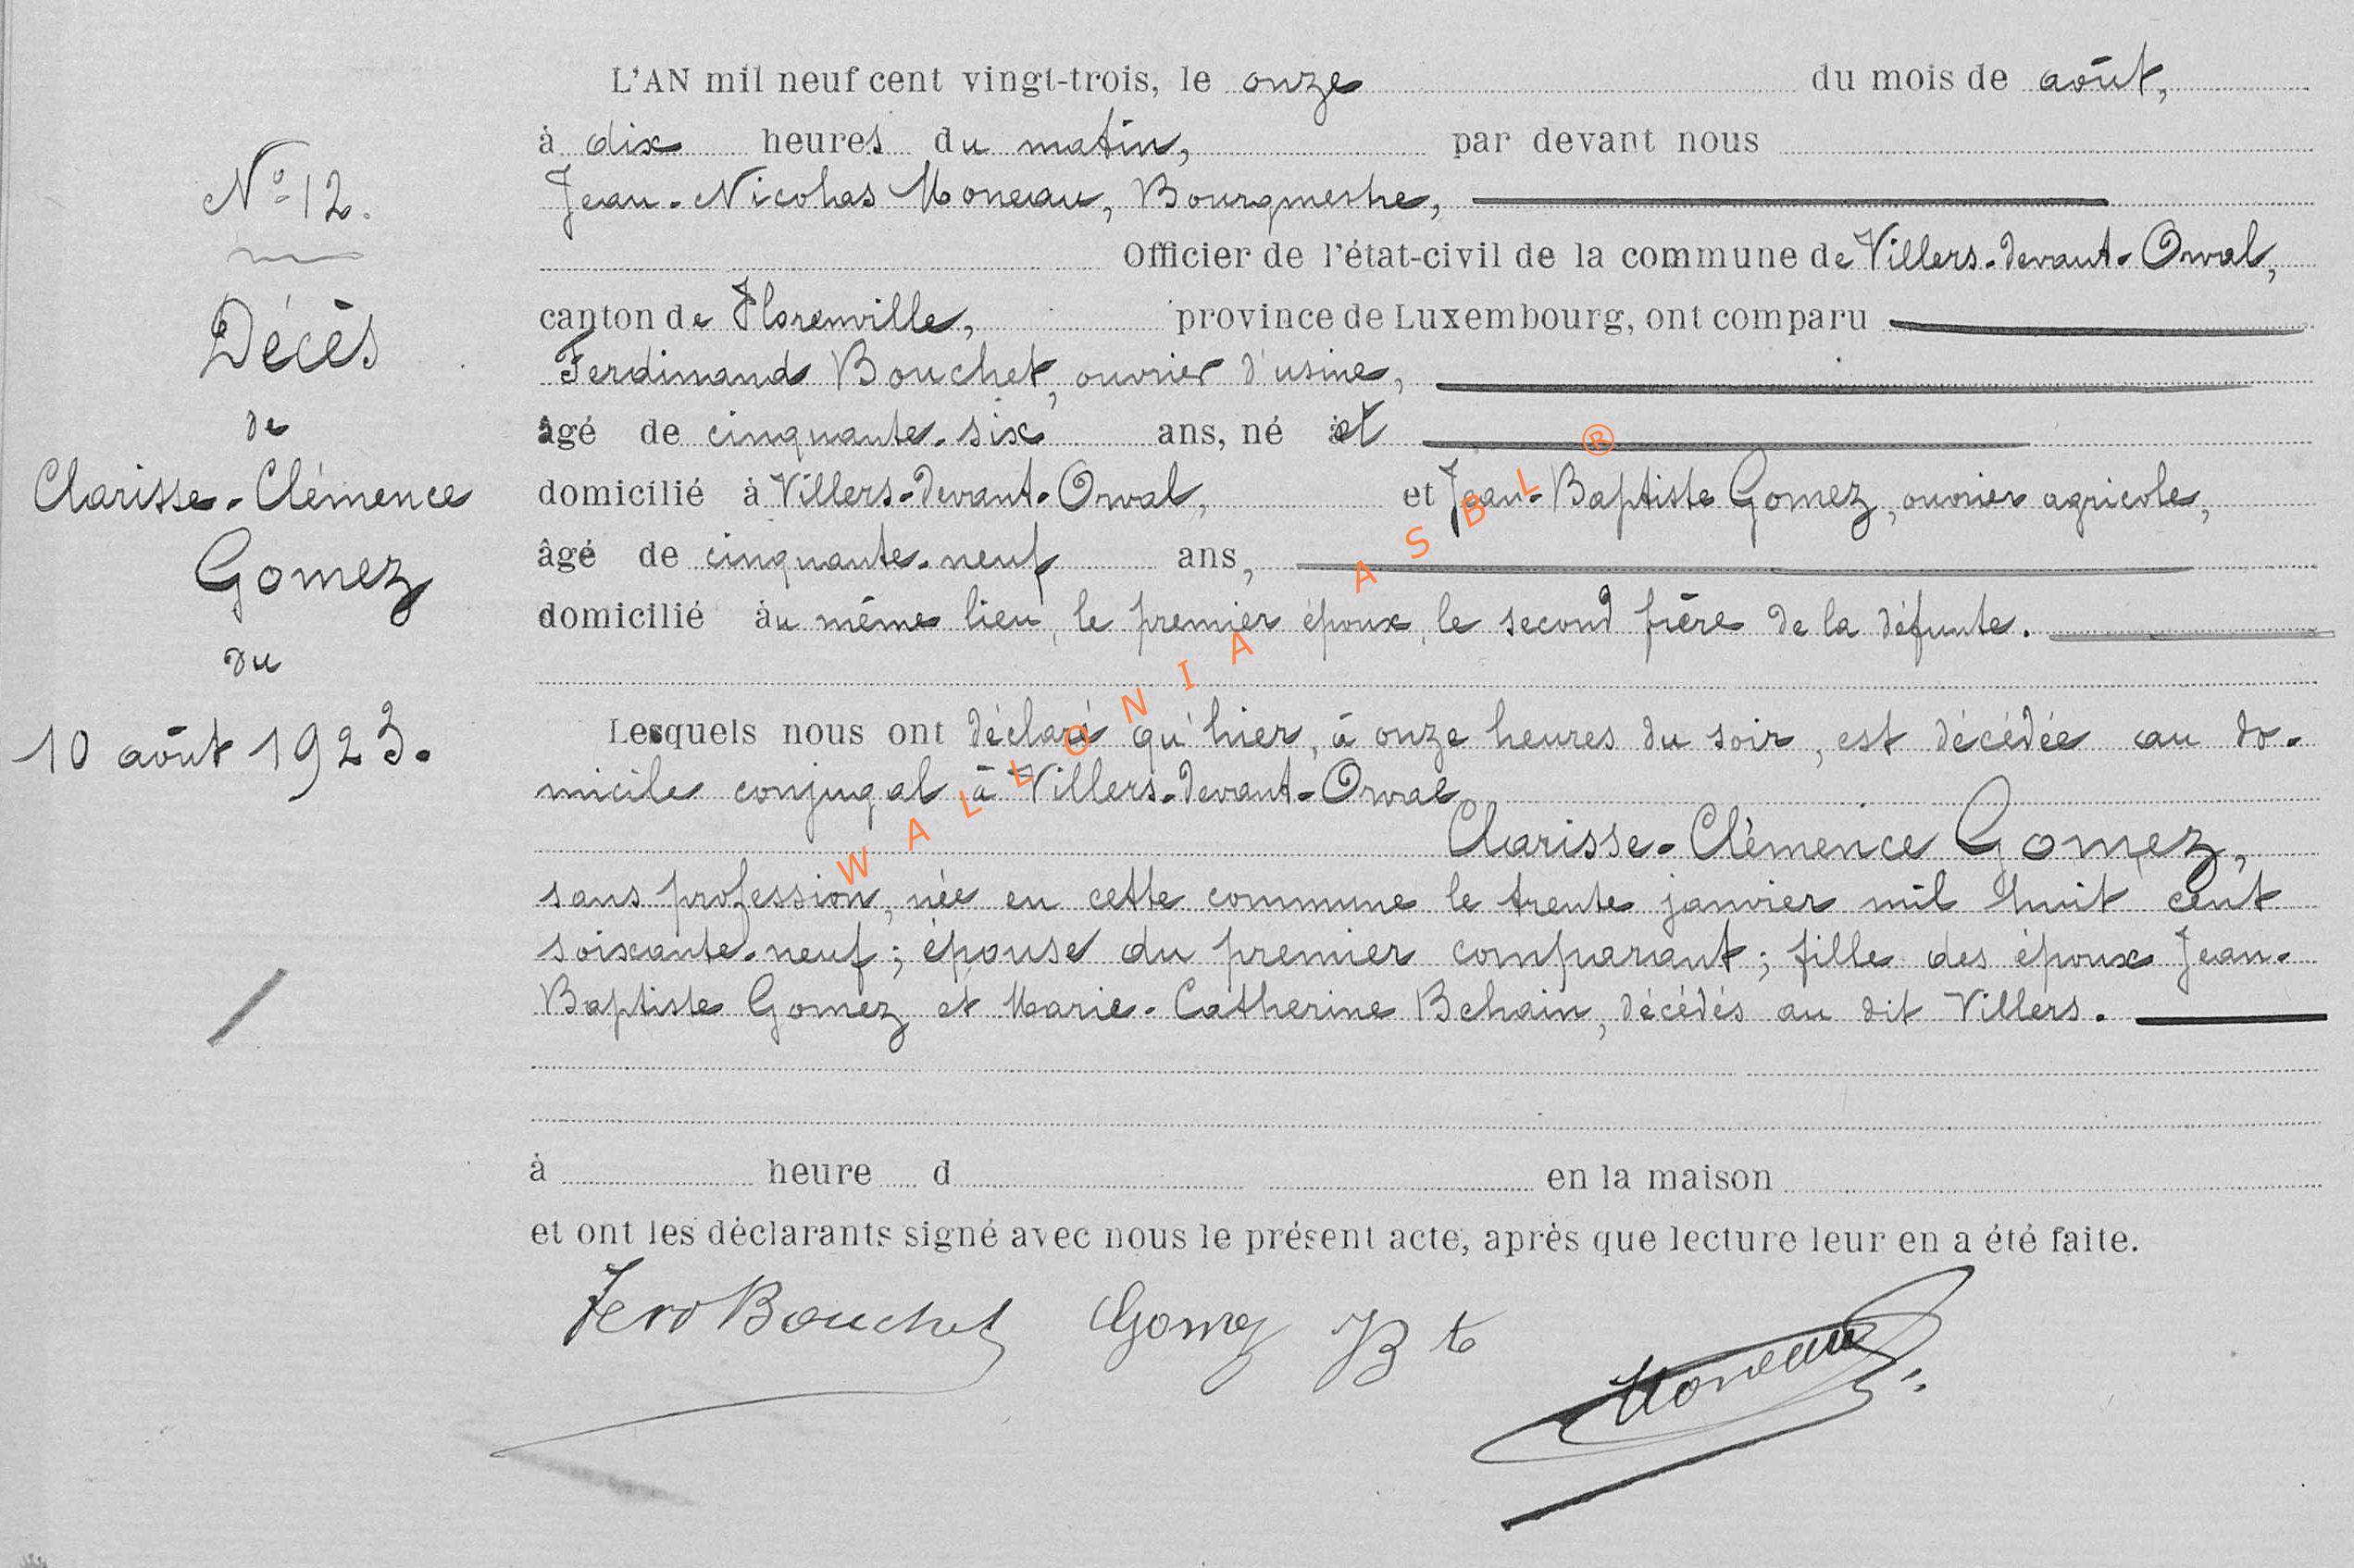 N° 12.
Décès
de
Clarisse-Clémence
Gomez
du
10 août 1923.
L'AN mil neuf cent vingt-trois, le onze du mois de août,
à dix heures du matin, par devant nous
Jean-Nicolas Moneau, Bourgmestre,
Officier de l'état-civil de la commune de Villers-devant-Orval,
canton de Florenville, province de Luxembourg, ont comparu
Ferdinand Bouchet, ouvrier d'usine,
âgé de cinquante-six ans, né et
domicilié à Villers-devant-Orval, et Jean-Baptiste Gomez, ouvrier agricole,
âgé de cinquante-neuf ans,
domicilié au même lieu, le premier époux, le second frère de la défunte.
Lesquels nous ont déclaré qu'hier, à onze heures du soir, est décédée au do-
micile conjugal à Villers-devant-Orval
Clarisse-Clémence Gomez,
sans profession, née en cette commune le trente janvier mil huit cent
soixante-neuf; épouse du premier comparant; fille des époux Jean-
Baptiste Gomez et Marie-Catherine Behain, décédés au dit Villers.
à heure d en la maison
et ont les déclarants signé avec nous le présent acte, après que lecture leur en a été faite.
Ferd Bouchet Gomez JBte Moneau
WALLONIA ASBL ®